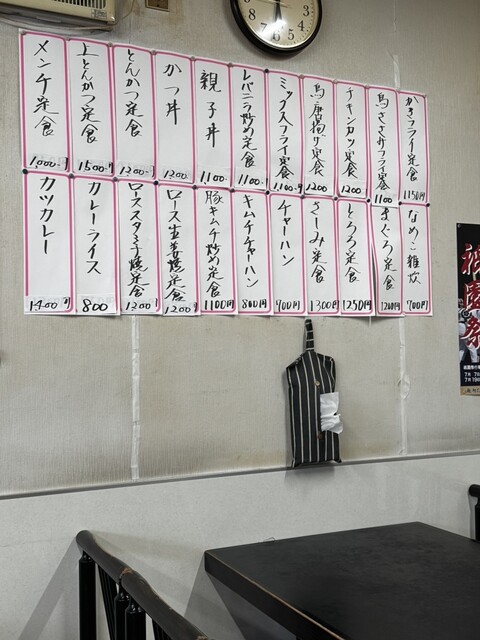 かきフライ定食 1150円
鳥ささみフライ定食 1100
チキンカツ定食 1200
鳥唐揚げ定食 1200
ミックスフライ定食 1100円
レバニラ炒め定食 1100
親子丼 1100
かつ丼 1200
とんかつ定食 1200
上とんかつ定食 1500
メンチ定食 1000円
なめこ雑炊 700円
まぐろ定食 1200円
とろろ定食 1250円
さしみ定食 1300円
チャーハン 900円
キムチチャーハン 800円
豚キムチ炒め定食 1100円
ロース生姜焼定食 1200
ローススタミナ焼定食 1300
カレーライス 800
カツカレー 1400円
8 7 6 5 4
祇園祭